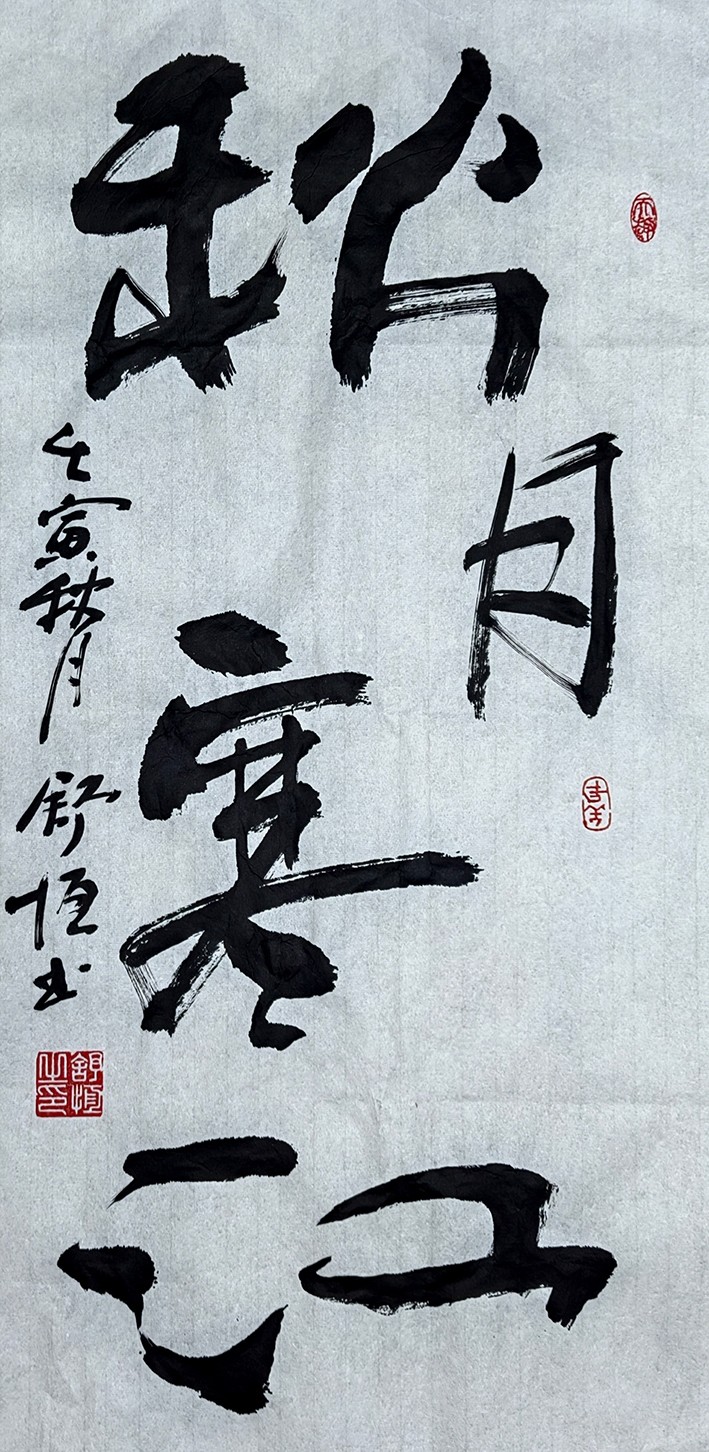 秋月寒江
壬寅秋月 舒恒书
舒恒之印